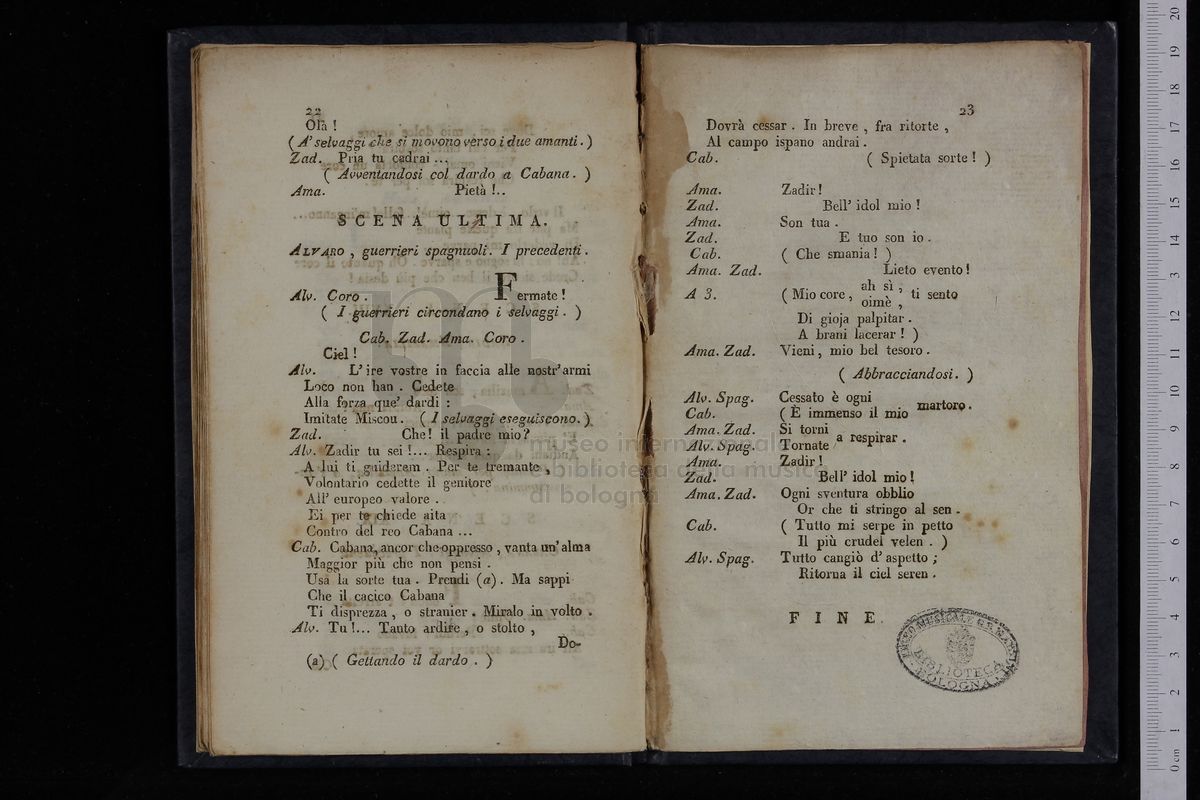 22
Olà !
( A' selvaggi che si movono verso i due amanti . )
Zad. Pria tu cadrai ...
( Avventandosi col dardo a Cabana . )
Ama. Pietà !..
SCENA ULTIMA.
ALVARO , guerrieri spagnuoli . I precedenti .
Alv. Coro . Fermate !
( I guerrieri circondano i selvaggi . )
Cab. Zad. Ama. Coro .
Ciel !
Alv. L' ire vostre in faccia alle nostr' armi
Loco non han . Cedete
Alla forza que' dardi :
Imitate Miscou . ( I selvaggi eseguiscono . )
Zad. Che ! il padre mio ?
Alv. Zadir tu sei !... Respira :
A lui ti guiderem . Per te tremante ,
Volontario cedette il genitore
All' europeo valore .
Ei per te chiede aita
Contro del reo Cabana ...
Cab. Cabana, ancor che oppresso , vanta un' alma
Maggior più che non pensi .
Usa la sorte tua . Prendi (a) . Ma sappi
Che il cacico Cabana
Ti disprezza , o stranier . Miralo in volto .
Alv. Tu !... Tanto ardire , o stolto ,
Do-
(a) ( Gettando il dardo . )
23
Dovrà cessar . In breve , fra ritorte ,
Al campo ispano andrai .
Cab. ( Spietata sorte ! )
Ama. Zadir !
Zad. Bell' idol mio !
Ama. Son tua .
Zad. E tuo son io .
Cab. ( Che smania ! )
Ama. Zad. Lieto evento !
A 3. ( Mio core , ah sì , oimè , ti sento
Di gioja palpitar .
A brani lacerar ! )
Ama. Zad. Vieni , mio bel tesoro .
( Abbracciandosi . )
Alv. Spag. Cessato è ogni
Cab. ( È immenso il mio martoro .
Ama. Zad. Si torni
Alv. Spag. Tornate a respirar .
Ama. Zadir !
Zad. Bell' idol mio !
Ama. Zad. Ogni sventura obblio
Or che ti stringo al sen .
Cab. ( Tutto mi serpe in petto
Il più crudel velen . )
Alv. Spag. Tutto cangiò d' aspetto ;
Ritorna il ciel seren .
FINE.
LICEO MUSICALE G.B. MARTINI
BIBLIOTECA
BOLOGNA
m
museo internazionale
e biblioteca della musica
di bologna
0 cm 1 2 3 4 5 6 7 8 9 10 11 12 13 14 15 16 17 18 19 20